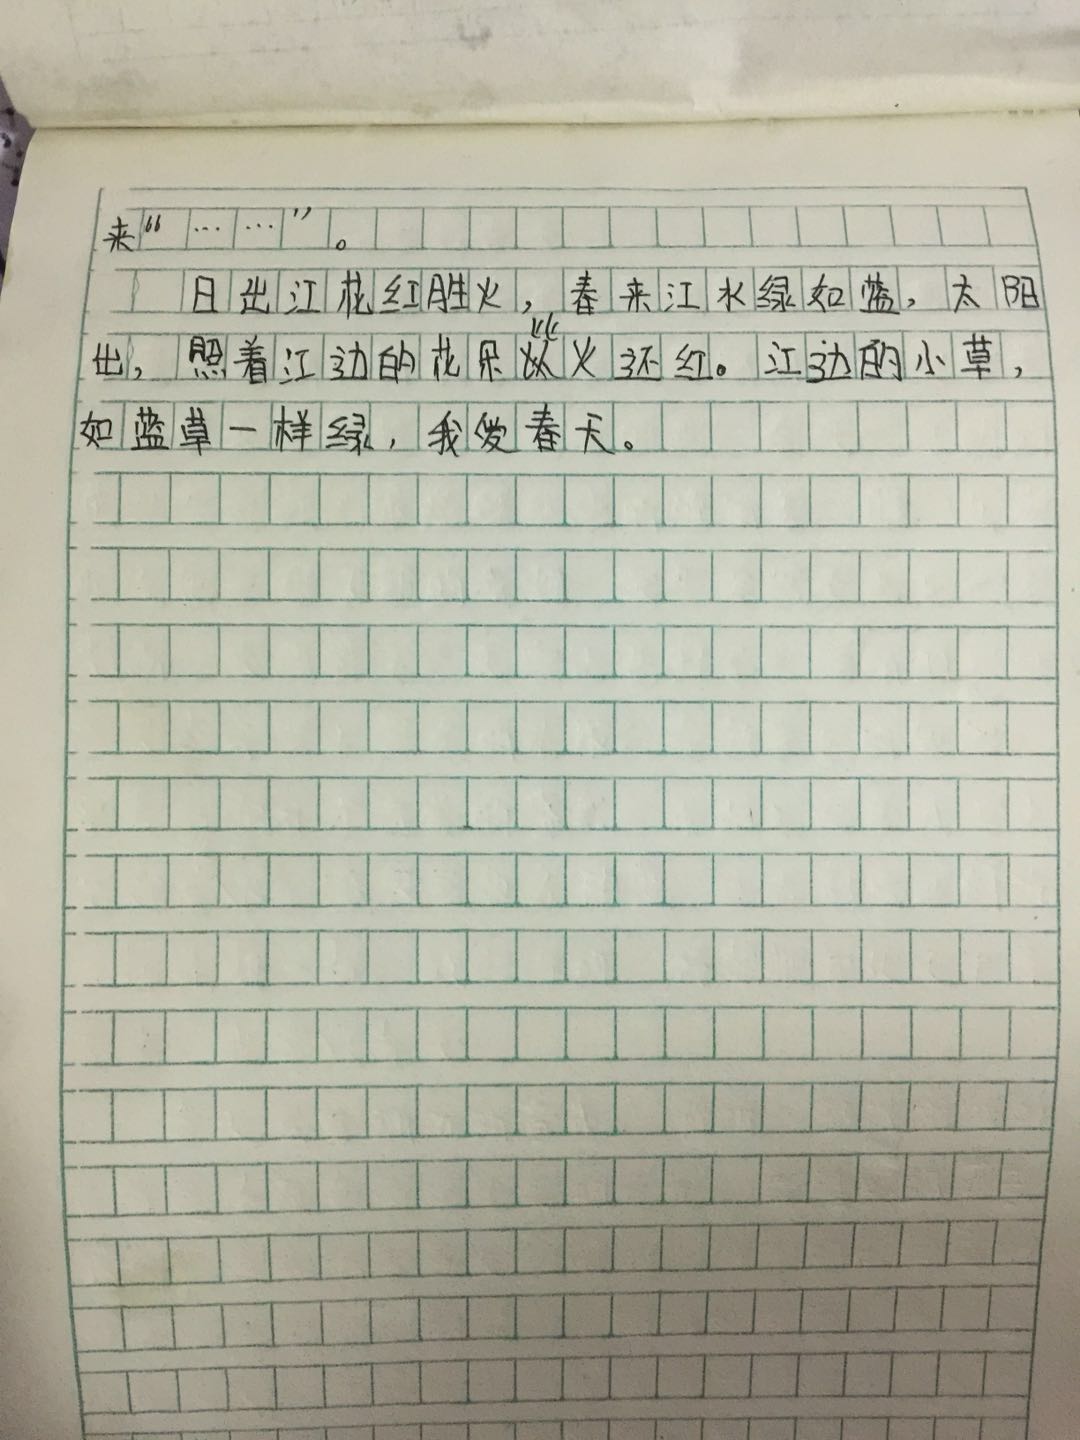 来“……”。
日出江花红胜火，春来江水绿如蓝，太阳
出，照着江边的花朵从火还红。江边的小草，
如蓝草一样绿，我爱春天。